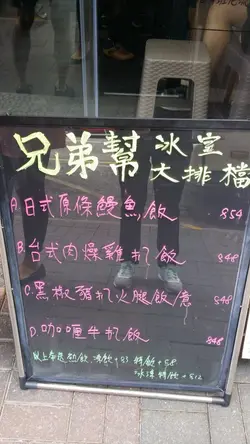 兄弟幫 冰室
大排檔
A.日式原條鰻魚飯 $54
B.台式肉燥雞扒飯 $48
C.黑椒豬扒火腿飯/意 $48
D.咖喱牛扒飯 $48
以上各送 凍飲+$3 特飲+$8
冰 特飲+$12